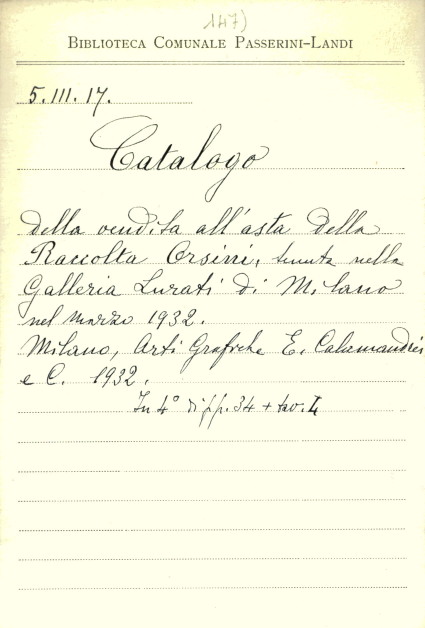 147)
BIBLIOTECA COMUNALE PASSERINI-LANDI
5.III.17.
Catalogo
della vendita all'asta della
Raccolta Orsini, tenuta nella
Galleria Lurati di Milano
nel marzo 1932.
Milano, Arti Grafiche E. Calamandrei
e C. 1932.
In 4° di pp. 34 + tav.